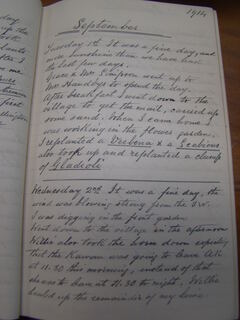 September
1914
Tuesday 1st It was a fine day, and
more sunshine than we have had
the last few days.
Grace & Mrs Simpson went up to
Mrs Handleys to spend the day.
After breakfast I went down to the
village to get the mail, carried up
some sand. When I came home I
was working in the flower garden.
I replanted a Verbena & a Scabious
also took up and replanted a clump
of Gladioli
Wednesday 2nd It was a fine day, the
wind was blowing strong from the S.W.
I was digging in the front garden
Went down to the village in the afternoon
Willie also took the down expecting
that the Kawau was going to leave
at 11.30 this morning, instead of that
she is to leave at 11.30 to night, Willie
up the remainder of my